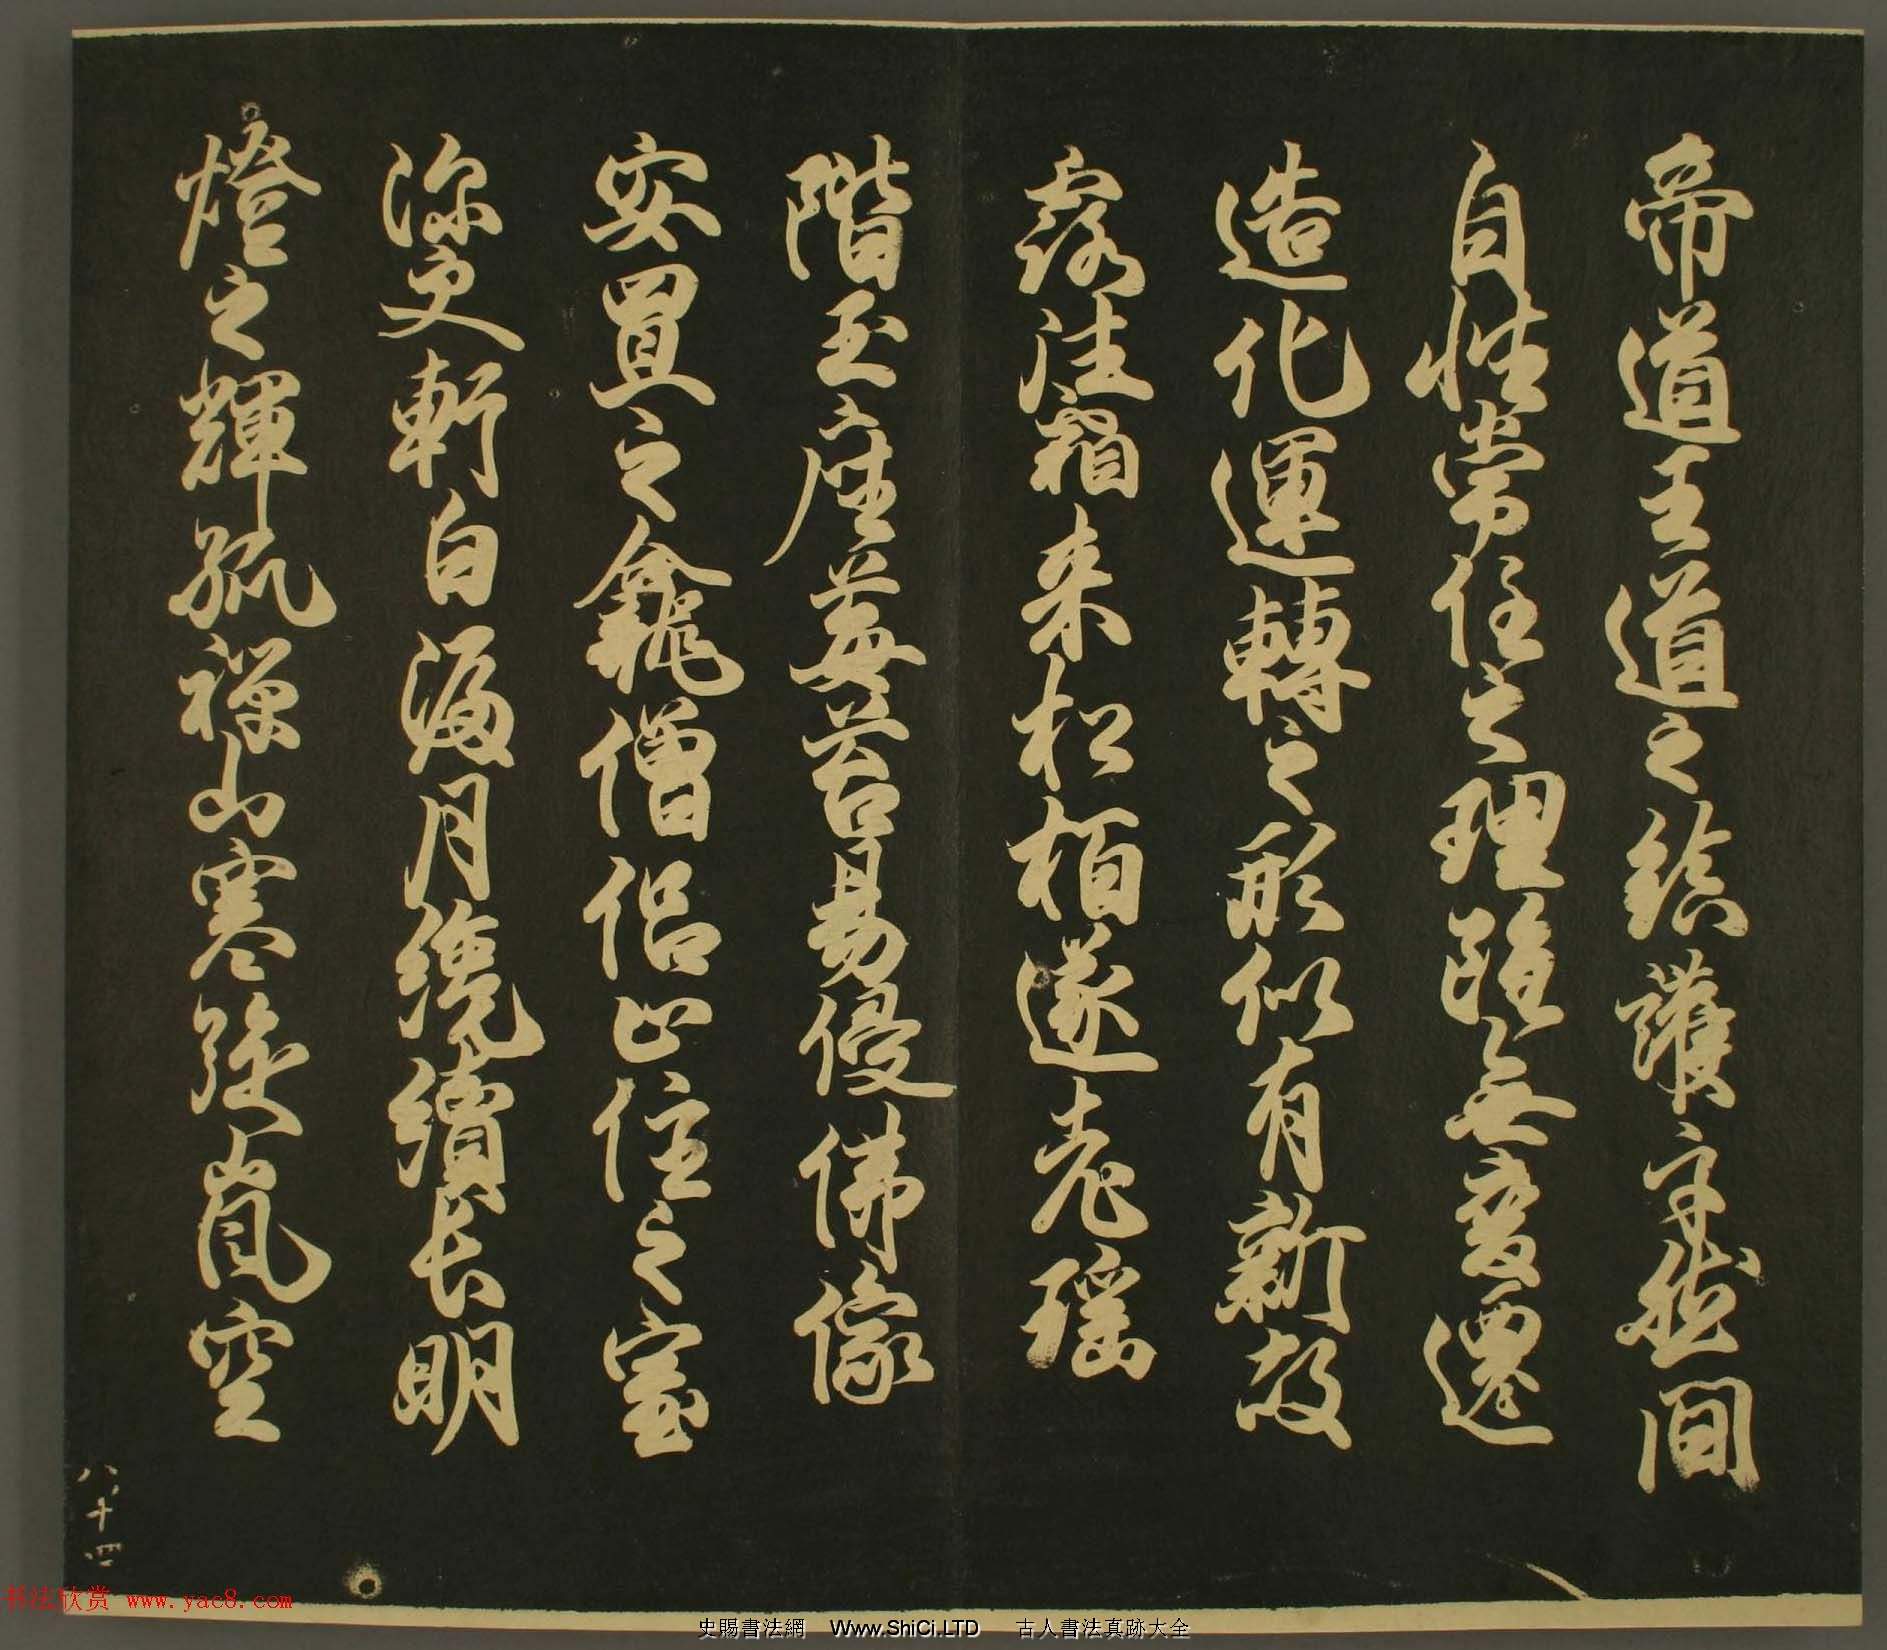 帝道王道之綜護守然間
自性常住之理雖無變遷
造化運轉之形似有新故
露注霜来松栢遂老瑶
階玉座莓苔易侵佛像
安置之龕僧侶止住之室
深更斬白漏月繞續長明
燈之輝孤禅山寒强嵐空
八十四
书法欣赏 www.yac8.com
史賜書法網 Www.ShiCi.LTD 古人書法真跡大全